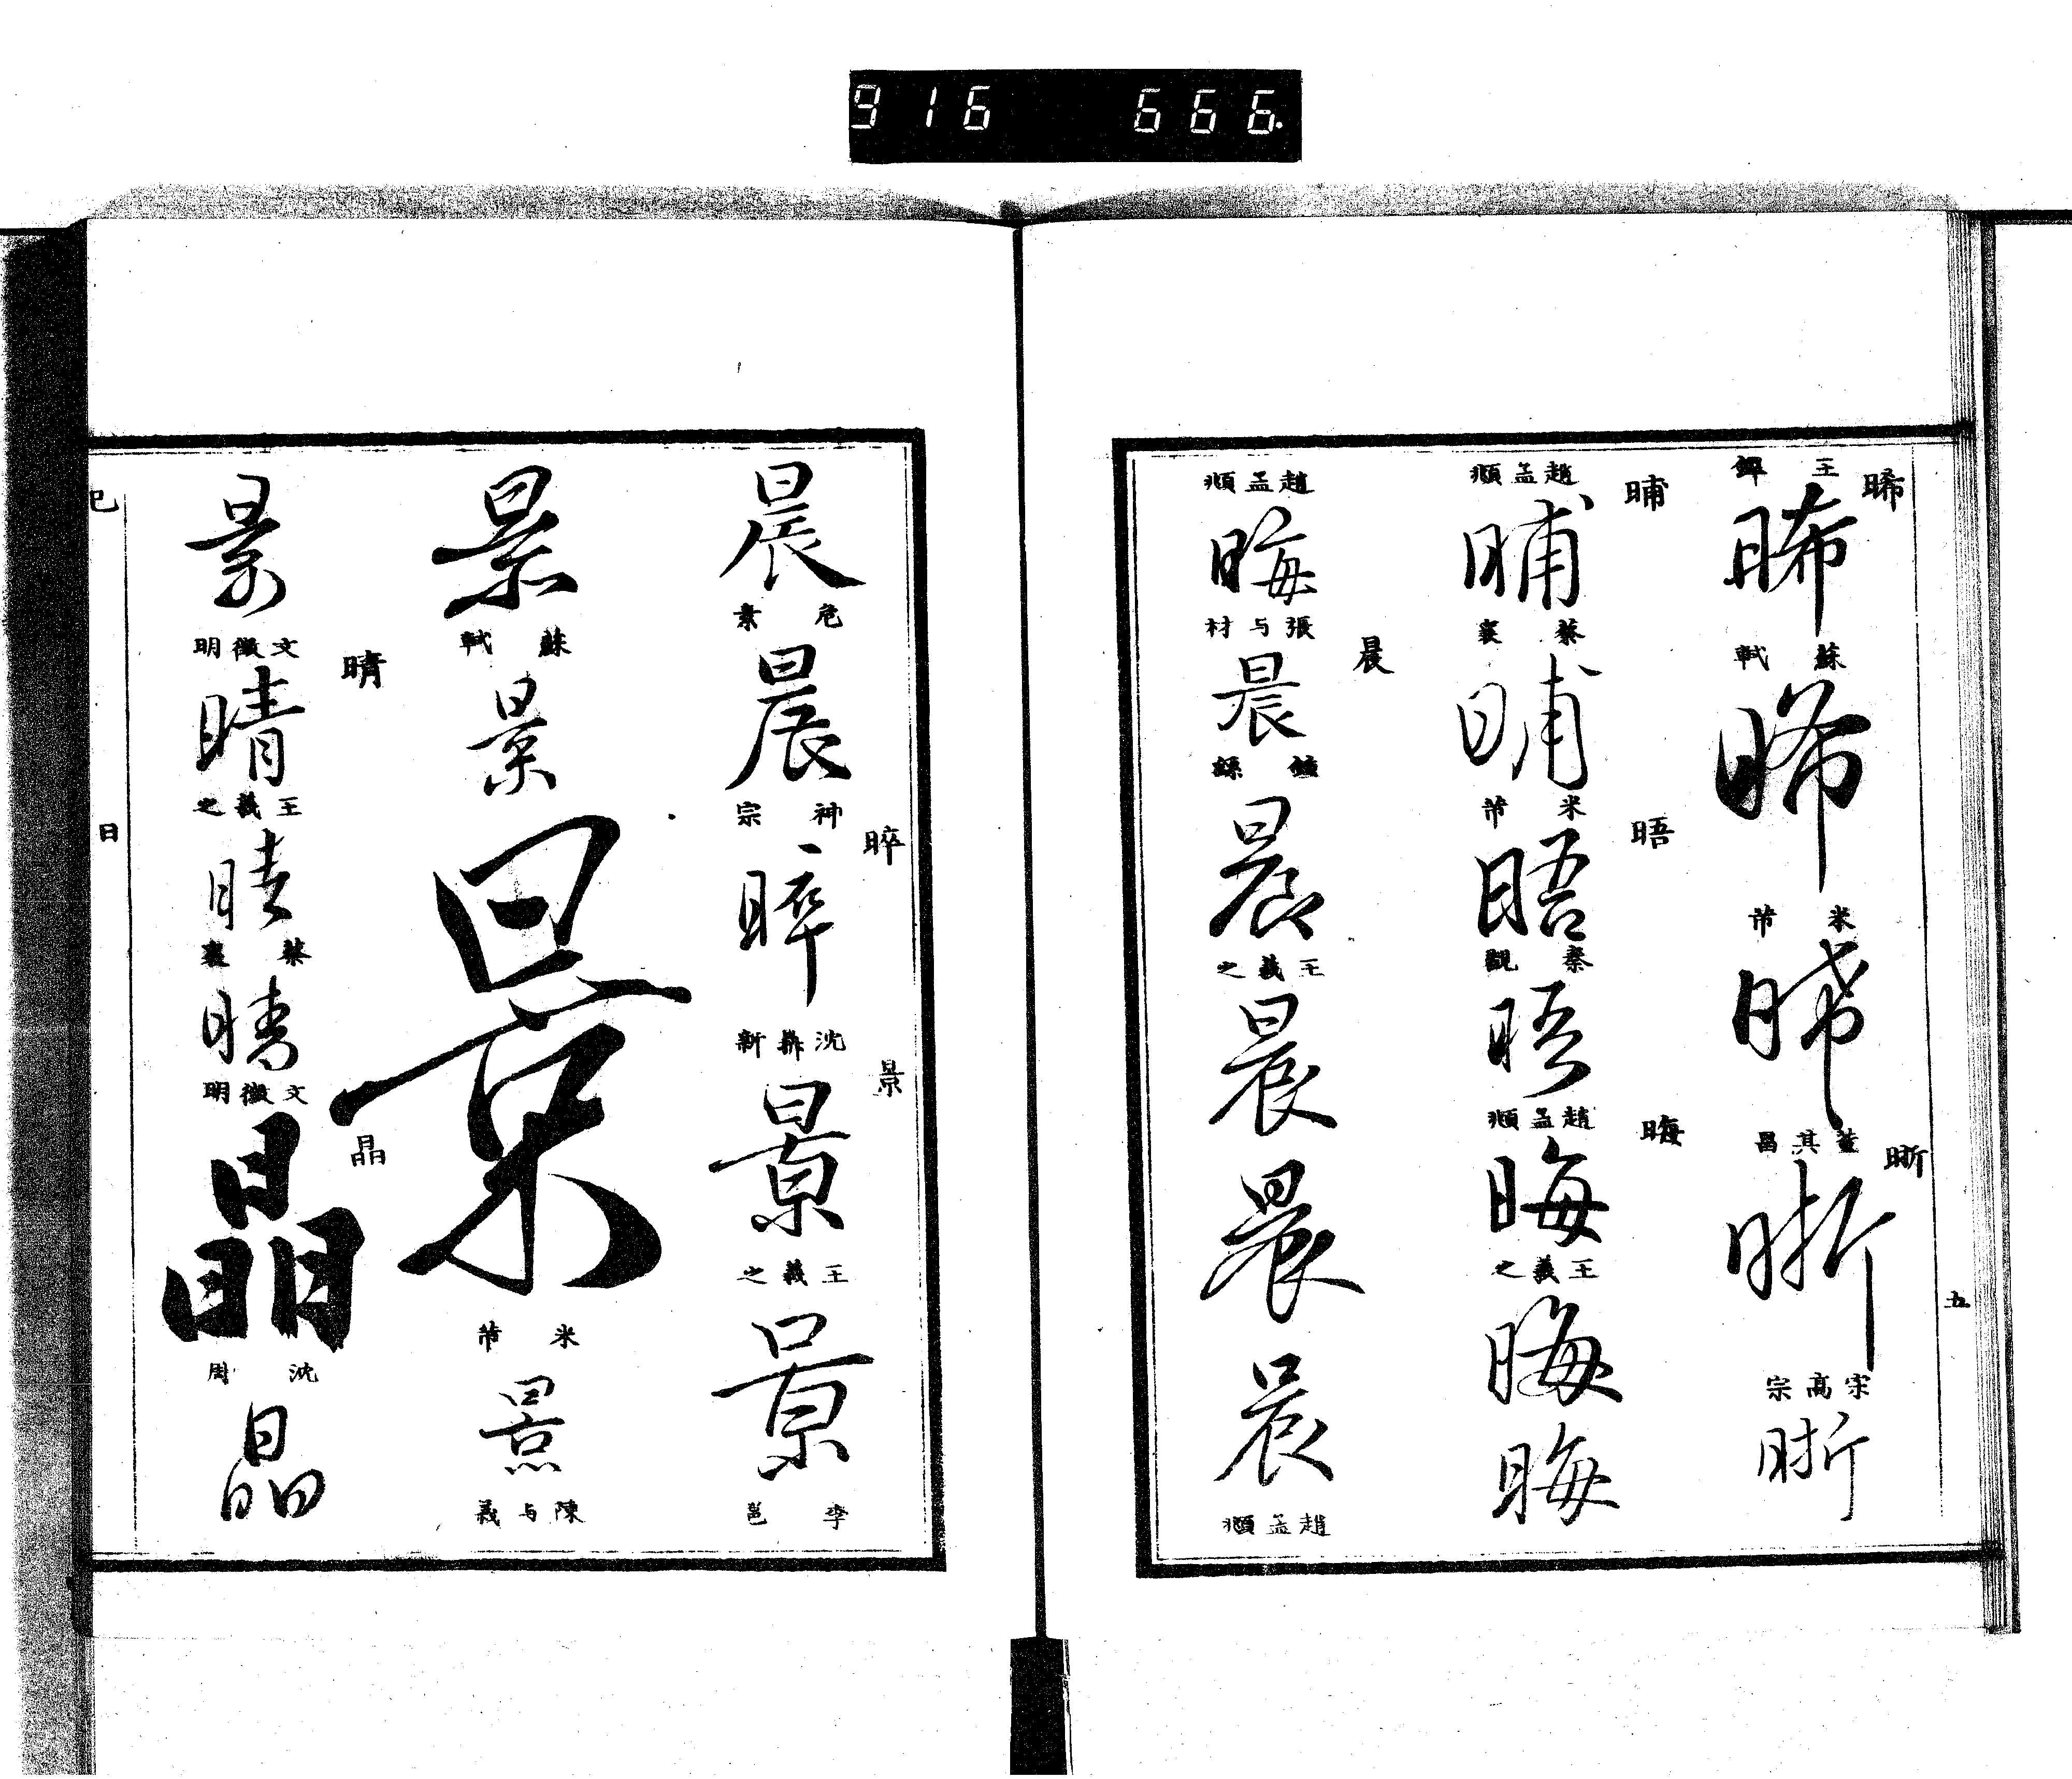 916 666.
五
晞
王鐸
晞
蘇軾
晞
米芾
晞
董其昌
晣
晣
宋高宗
晣
晡
趙孟頫
晡
蔡襄
晡
米芾
晤
晤
秦觀
晤
趙孟頫
晦
晦
王羲之
晦
晦
趙孟頫
晦
張与材
晨
晨
鍾繇
晨
王羲之
晨
晨
晨
趙孟頫
晨
危素
晨
神宗
晬
晬
景
景
王羲之
景
李邕
景
蘇軾
景
景
米芾
景
陳与義
景
文徵明
晴
晴
王羲之
晴
蔡襄
晴
文徵明
晶
晶
沈周
晶
巳
日